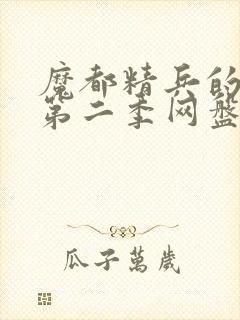 魔都精兵的
第二季网盘
瓜子萬歲